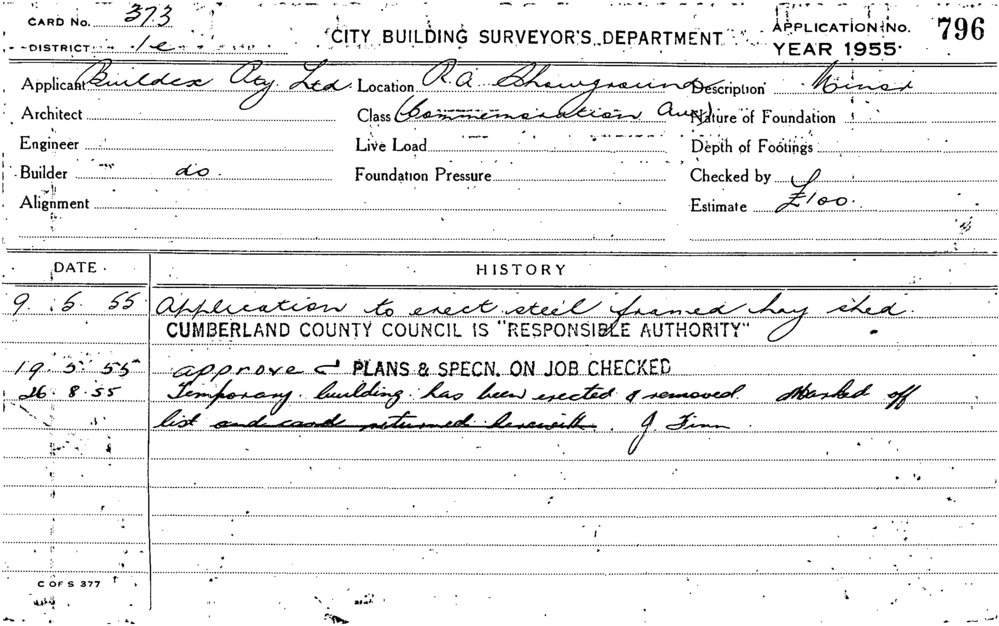 CARD No. 373
DISTRICT 1e
CITY BUILDING SURVEYOR'S DEPARTMENT
APPLICATION No. 796
YEAR 1955
Applicant Buildex Pty Ltd. Location R.A. Showground Description Minor
Architect Class (Commemoration Ave) Nature of Foundation
Engineer Live Load Depth of Footings
Builder do. Foundation Pressure Checked by
Alignment Estimate £100.
DATE HISTORY
9. 5. 55 Application to erect steel framed hay shed.
CUMBERLAND COUNTY COUNCIL IS "RESPONSIBLE AUTHORITY"
19. 5. 55 approved PLANS & SPECN. ON JOB CHECKED
26. 8. 55 Temporary building has been erected & removed. Marked off
list and card returned herewith. J. Finn
C OF S 377